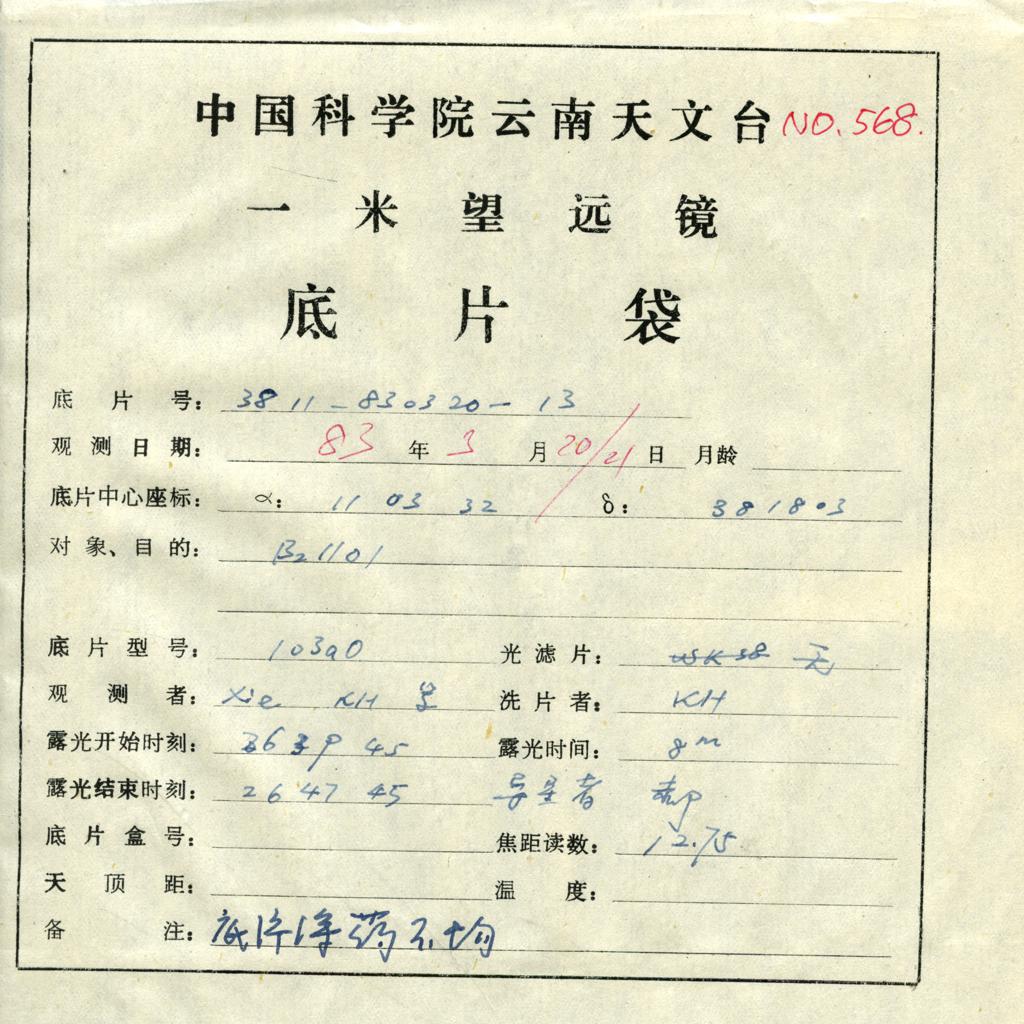 中国科学院云南天文台 NO.568.
一米望远镜
底片袋
底片号: 3811-830320-13
观测日期: 83年3月20/21日 月龄
底片中心座标: α: 11 03 32 δ: 381803
对象、目的: B21101
底片型号: 103aO 光滤片: 无
观测者: Xie KH 洗片者: KH
露光开始时刻: 26 39 45 露光时间: 8m
露光结束时刻: 26 47 45 导星者
底片盒号: 焦距读数: 12.75
天顶距: 温度:
备注: 底片涂药不均